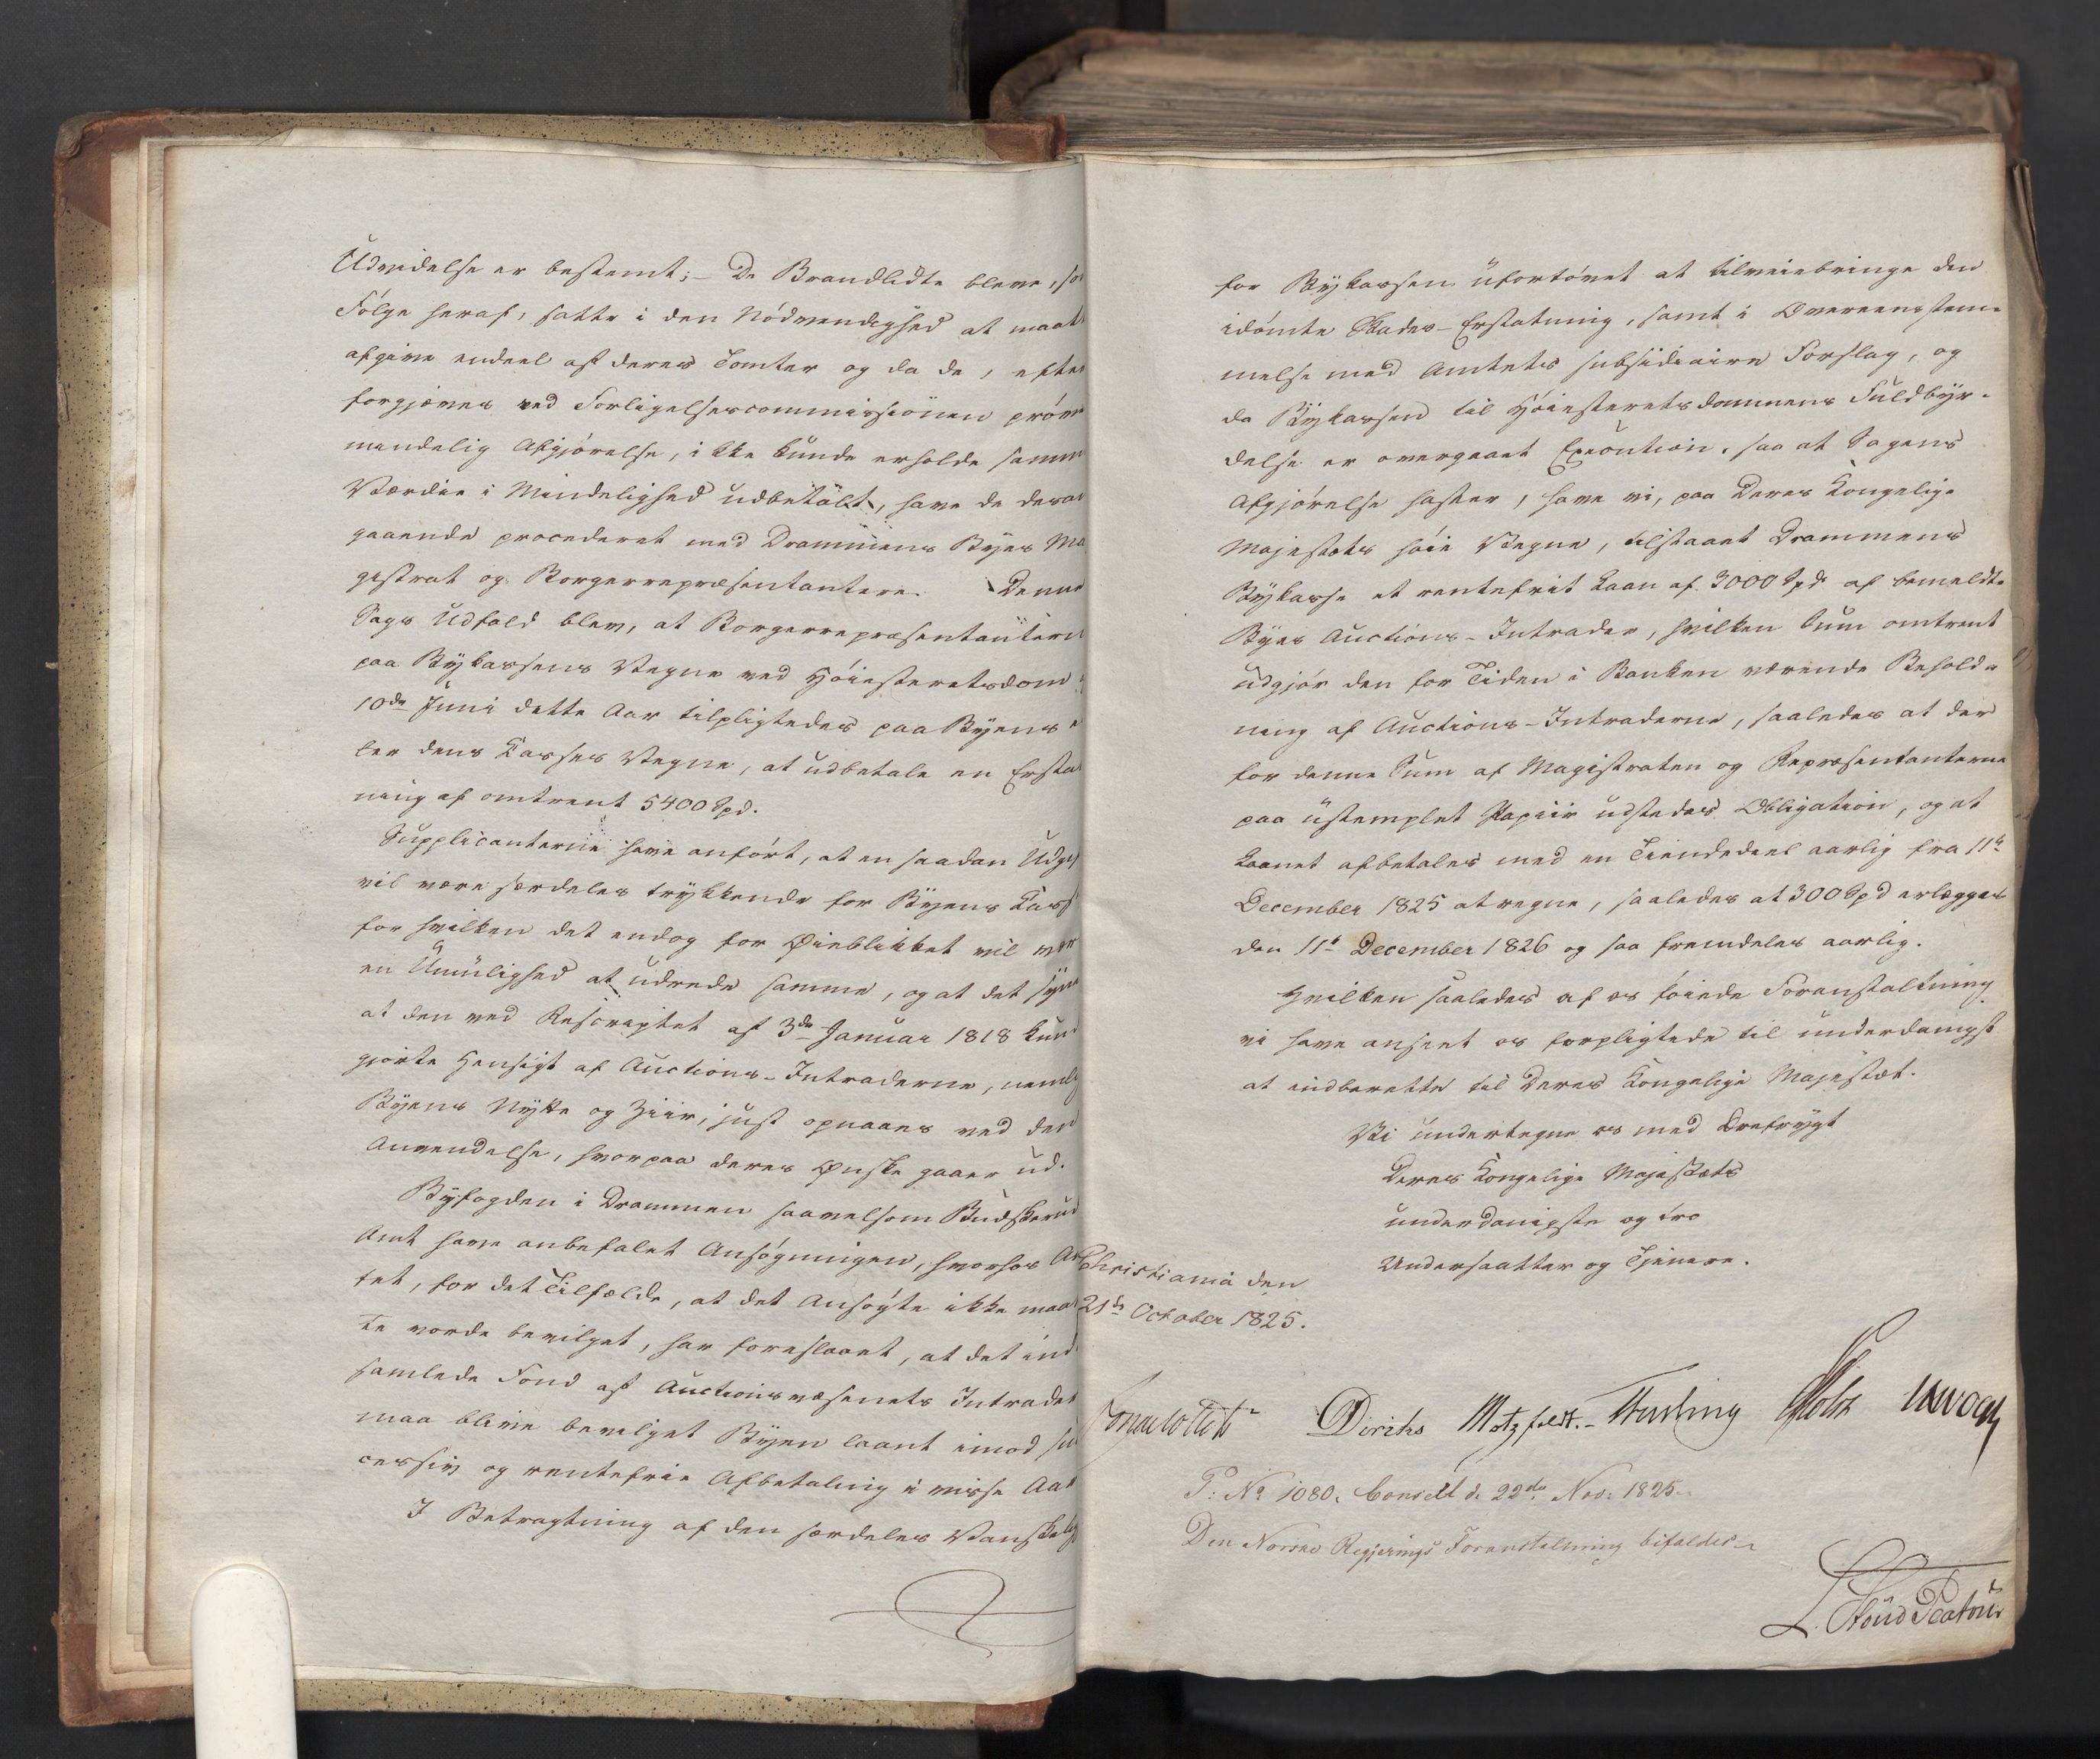 Udvidelse er bestemt; – De Brandlidte bleve, so
Følge heraf, satte i den Nødvendighed at maatt
afgive endeel af deres Tomter og da de, efter
forgjæves ved Forligelsescommissionen prøve
mindelig Afgjørelse, ikke kunde erholde samm
Værdie i Mindelighed udbetalt, have de desan
gaaende procederet med Drammens Byes Ma
gistrat og Borgerrepræsentantere. Denne
Sags Udfald blev, at Borgerrepræsentantern
paa Bykassens Vegne ved Høiesteretsdom
10de Juni dette Aar tilpligtedes paa Byens e
ler dens Kasses Vegne, at udbetale en Ersta
ning af omtrent 5400 Spd.
Supplicanterne have anført, at en saadan Udgif
vil være særdeles trykkende for Byens Kass
for hvilken det endog for Øieblikket vil vær
en Umulighed at udrede samme, og at det syne
at den ved Rescriptet af 3de Januar 1818 kund
gjorte Hensigt af Auctions-Intraderne, nemlig
Byens Nytte og Ziir, just opnaaes ved den
Anvendelse, hvorpaa deres Ønske gaaer ud.
Byfogden i Drammen saavelsom Budskerud
Amt have anbefalet Ansøgningen, hvorhos Am
tet, for det Tilfælde, at det Ansøgte ikke maat
te vorde bevilget, har foreslaaet, at det ind
samlede Fond af Auctionsvæsenets Intrader
maa blive bevilget Byen laant imod suc
cessiv og rentefrie Afbetaling i visse Aar
I Betragtning af den særdeles Vanskelig
for Bykassen ufortøvet at tilveiebringe den
idømte Skades-Erstatning, samt i Overeensstem-
melse med Amtets subsidiaire Forslag, og
da Bykassen til Høiesteretsdommens Fuldbyr-
delse er overgaaet Execution, saa at Sagens
Afgjørelse haster, have vi, paa Deres Kongelige
Majestæts høie Vegne, tilstaaet Drammens
Bykasse et rentefrit Laan af 3000 Spd af bemeldte
Byes Auctions-Intrader, hvilken Sum omtrent
udgjør den for Tiden i Banken værende Behold-
ning af Auctions-Intraderne, saaledes at der
for denne Sum af Magistraten og Repræsentanterne
paa ustemplet Papiir udstedes Obligation, og at
Laanet afbetales med en Tiendedeel aarlig fra 11te
December 1825 at regne, saaledes at 300 Spd erlægges
den 11te December 1826 og saa fremdeles aarlig.
Hvilken saaledes af os føiede Foranstaltning
vi have anseet os forpligtede til underdanigst
at indberette til Deres Kongelige Majestæt.
Vi undertegne os med Ærefrygt
Deres Kongelige Majestæts
underdanigste og tro
Undersaatter og Tjenere.
Christiania den
21de October 1825.
Diriks Motzfeldt. Fasting Holst
P: No 1080. Conseilt d. 22de Nov: 1825.
Den Norske Regjerings Foranstaltning bifaldes